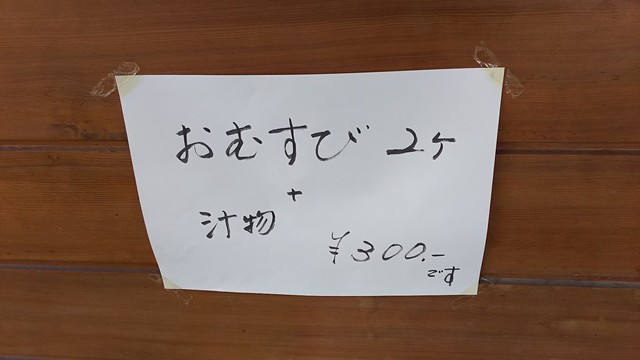 おむすび 2ケ
+
汁物
¥300.-
です